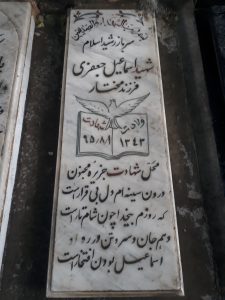 سرباز رشید اسلام
شهید اسماعیل جعفری
فرزند مختار
ولادت شهادت
۱۳۴۳ ۶۵/۸/۸
محل شهادت جزیره مجنون
درون سینه‌ام دل بی قرار است
که روزم بیخدا چون شام تار است
دهم جان و سر و تن در ره او
اسماعیل بودن افتخار است